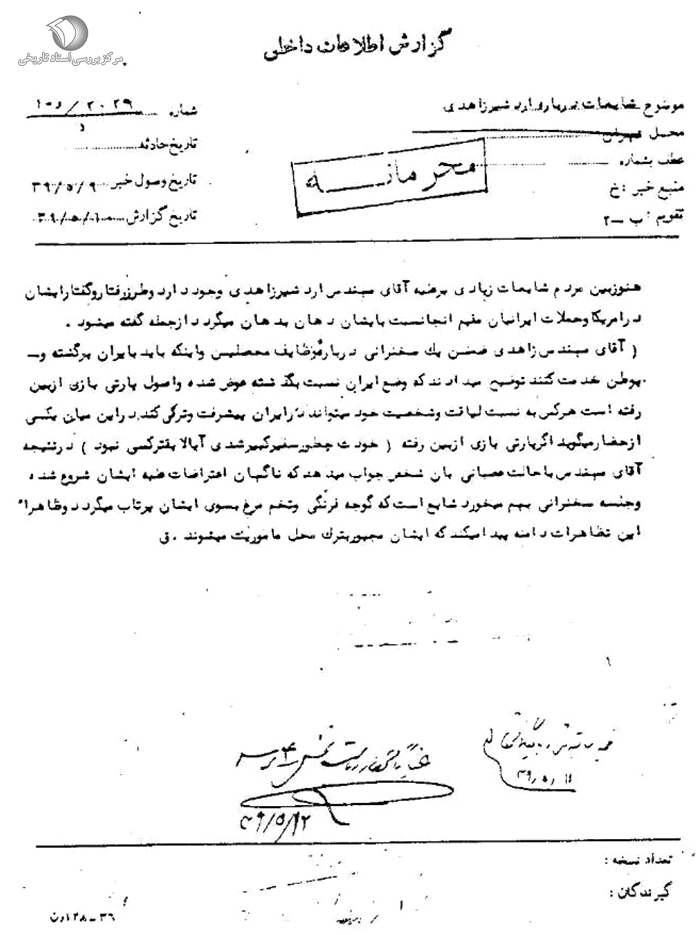 مرکز بررسی اسناد تاریخی
گزارش اطلاعات داخلی
موضوع شایعات درباره اردشیرزاهدی
محل تهران
عطف بشماره
منبع خبر : خ
تقویم : ب -۲
شماره ۲۰۲۹/
تاریخ حادثه
تاریخ وصول خبر ۳۹/۵/۹
تاریخ گزارش ۳۹/۵/۱۰
محرمانــــه
هنوزبین مردم شایعات زیادی برعلیه آقای مهندس اردشیرزاهدی وجود دارد وطرزرفتاروگفتارایشان
درامریکا وحملات ایرانیان مقیم انجانسبت بایشان دهان بدهان میگردد ازجمله گفته میشود .
( آقای مهندس زاهدی ضمن یک سخنرانی درباره وظایف محصلین واینکه باید بایران برگشته و-
بوطن خدمت کنند توضیح میدادند که وضع ایران نسبت بگذشته عوض شده واصول پارتی بازی ازبین
رفته است هرکس به نسبت لیاقت وشخصیت خود میتواند درایران پیشرفت وترقی کند دراین میان یکی
ازحضارمیگوید اگرپارتی بازی ازبین رفته ( خودت چطورسفیرکبیرشدی آیالایقترکسی نبود ) درنتیجه
آقای مهندس باحالت عصبانی بان شخص جواب میدهد که ناگهان اعتراضات علیه ایشان شروع شده
وجلسه سخنرانی بهم میخورد شایع است که گوجه فرنگی وتخم مرغ بسوی ایشان پرتاب میگردد وظاهراً
این تظاهرات دامنه پیدا میکند که ایشان مجبوربترک محل ماموریت میشوند . ق
۳۹/۵/۱۱
۳۹/۵/۱۲
تعداد نسخه :
گیرندگان :
۳۶-۱۲۸رن